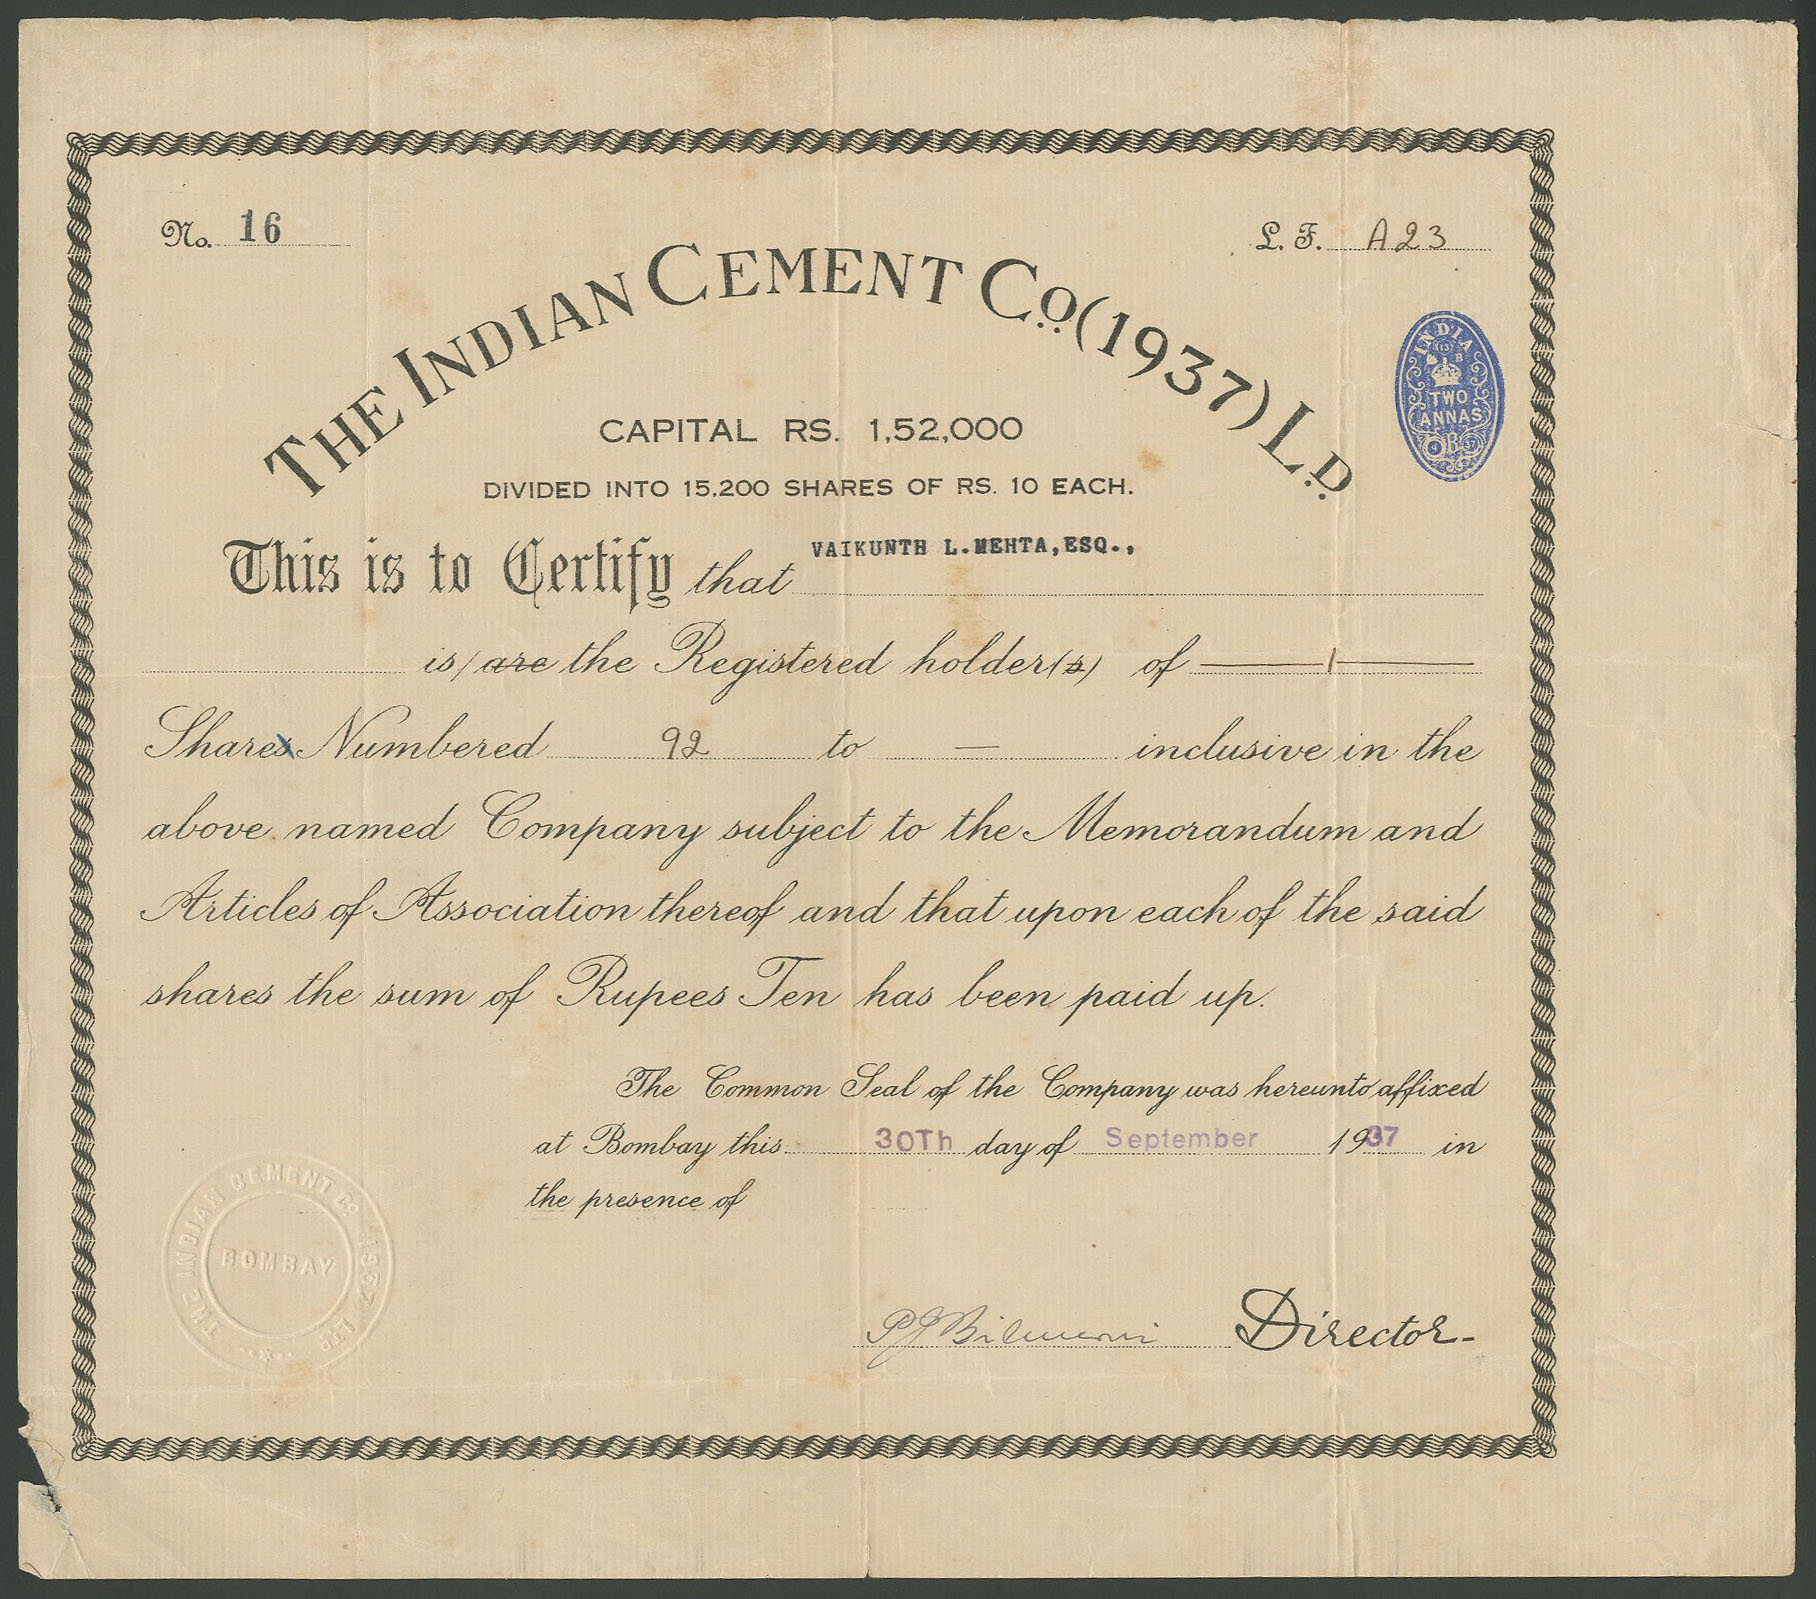 No. 16
L. F. A23
THE INDIAN CEMENT CO. (1937) LD.
INDIA
TWO
ANNAS
CAPITAL RS. 1,52,000
DIVIDED INTO 15,200 SHARES OF RS. 10 EACH.
This is to Certify that VAIKUNTH L.MEHTA,ESQ.,
is/are the Registered holder(s) of 1
Shares Numbered 92 to — inclusive in the
above named Company subject to the Memorandum and
Articles of Association thereof and that upon each of the said
shares the sum of Rupees Ten has been paid up.
The Common Seal of the Company was hereunto affixed
at Bombay this 30Th day of September 1937 in
the presence of
THE INDIAN CEMENT CO. (1937) LTD.
BOMBAY
Director